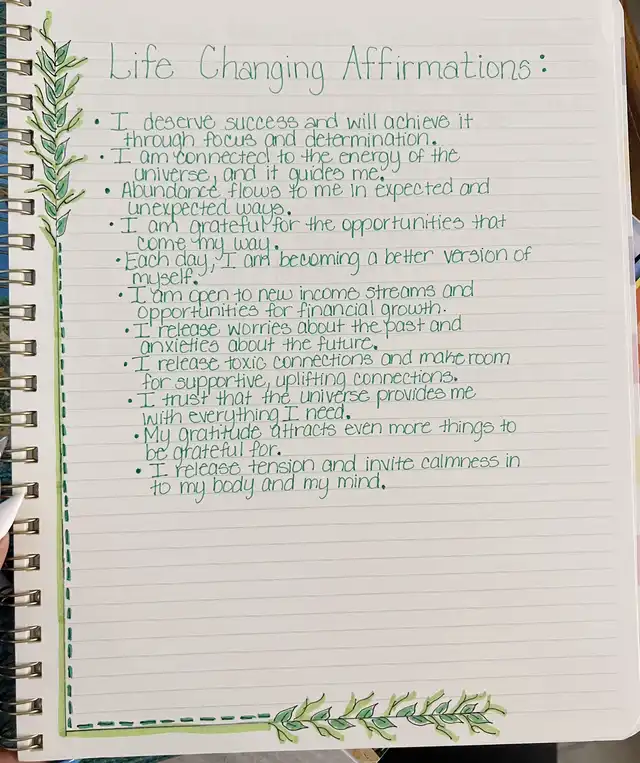 Life Changing Affirmations:
• I deserve success and will achieve it
through focus and determination.
• I am connected to the energy of the
universe, and it guides me.
• Abundance flows to me in expected and
unexpected ways.
• I am grateful for the opportunities that
come my way.
• Each day, I am becoming a better version of
myself.
• I am open to new income streams and
opportunities for financial growth.
• I release worries about the past and
anxieties about the future.
• I release toxic connections and make room
for supportive, uplifting connections.
• I trust that the universe provides me
with everything I need.
• My gratitude attracts even more things to
be grateful for.
• I release tension and invite calmness in
to my body and my mind.